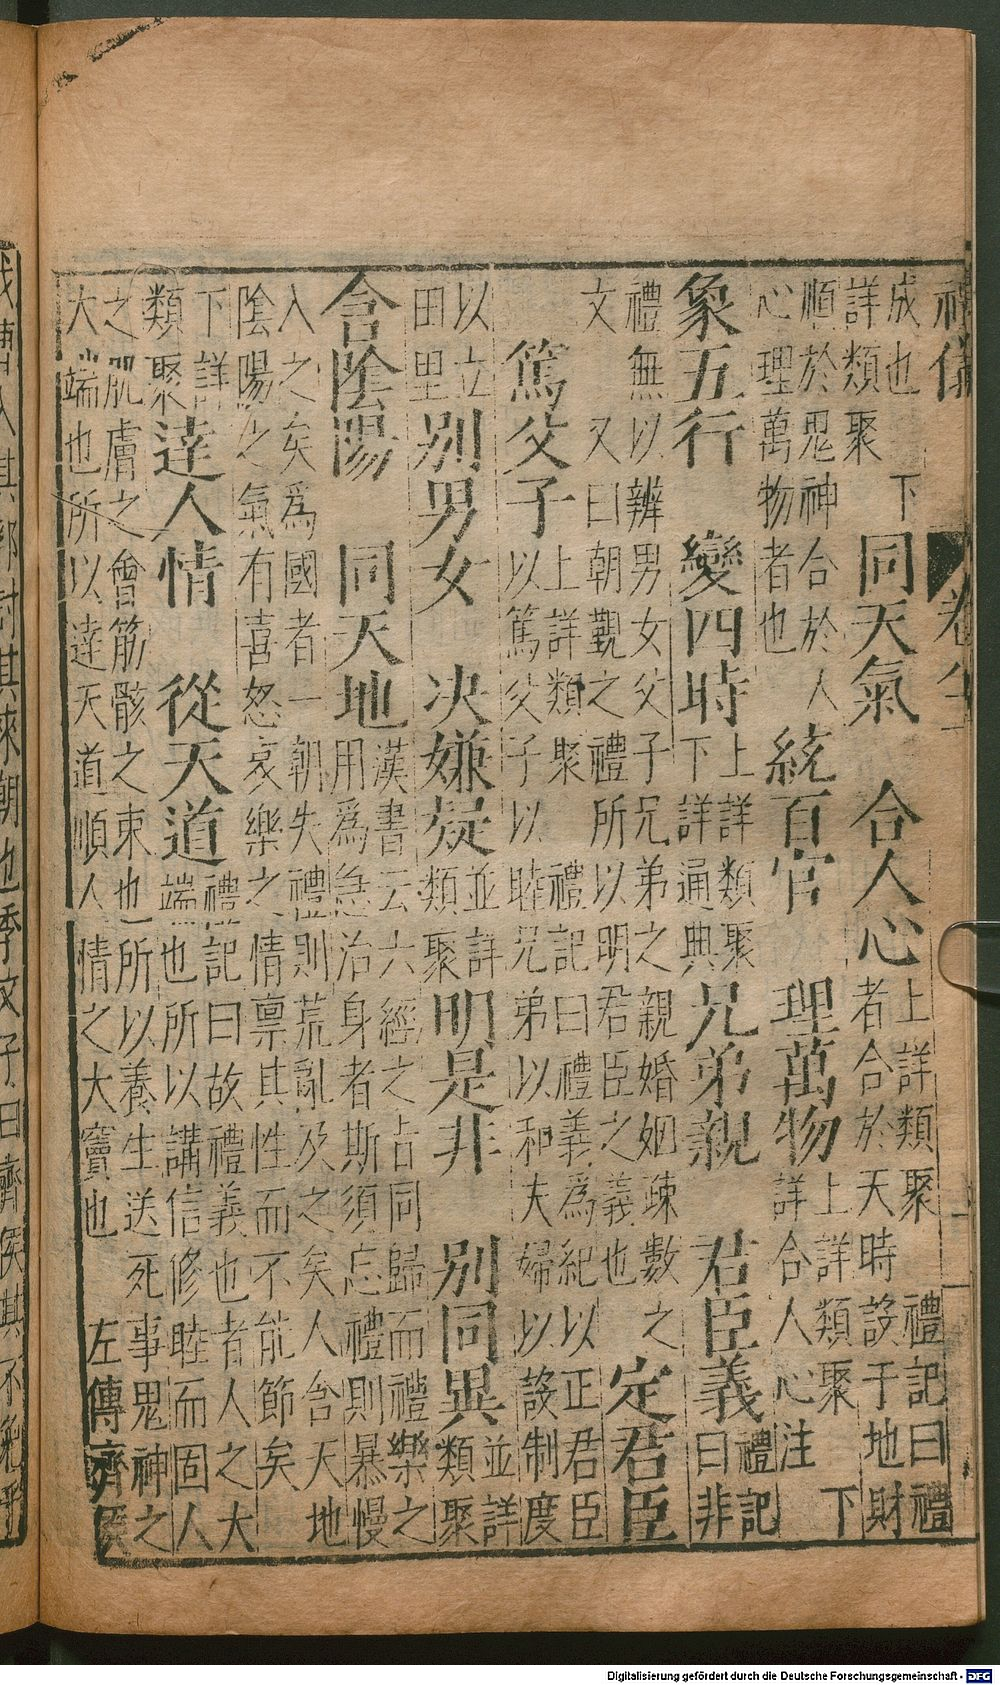 禮儀
成也 下
詳類聚
同天氣 合人心
上詳類聚 禮記曰禮
者合於天時設于地財
順於鬼神合於人
心理萬物者也
統百官 理萬物
上詳類聚 下
詳合人心注
象五行 變四時
上詳類聚
下詳通典
兄弟親 君臣義
禮記
曰非
禮無以辨男女父子兄弟之親婚姻疎數之
文 又曰朝覲之禮所以明君臣之義也
定君臣
篤父子
上詳類聚 禮記曰禮義爲紀以正君臣
以篤父子以睦兄弟以和夫婦以設制度
以立
田里
别男女 決嫌疑
並詳
類聚
明是非 别同異
並詳
類聚
含陰陽 同天地
漢書云六經之占同歸而禮樂之
用爲急治身者斯須忘禮則暴慢
入之矣爲國者一朝失禮則荒亂及之矣人含天地
陰陽之氣有喜怒哀樂之情禀其性而不能節矣
下詳
類聚
達人情 從天道
禮記曰故禮義也者人之大
端也所以講信修睦而固人
之肌膚之會筋骸之束也所以養生送死事鬼神之
大端也所以達天道順人情之大竇也 左傳齊侯
伐曹入其郛討其來朝也季文子曰齊侯其不免乎
Digitalisierung gefördert durch die Deutsche Forschungsgemeinschaft - DFG